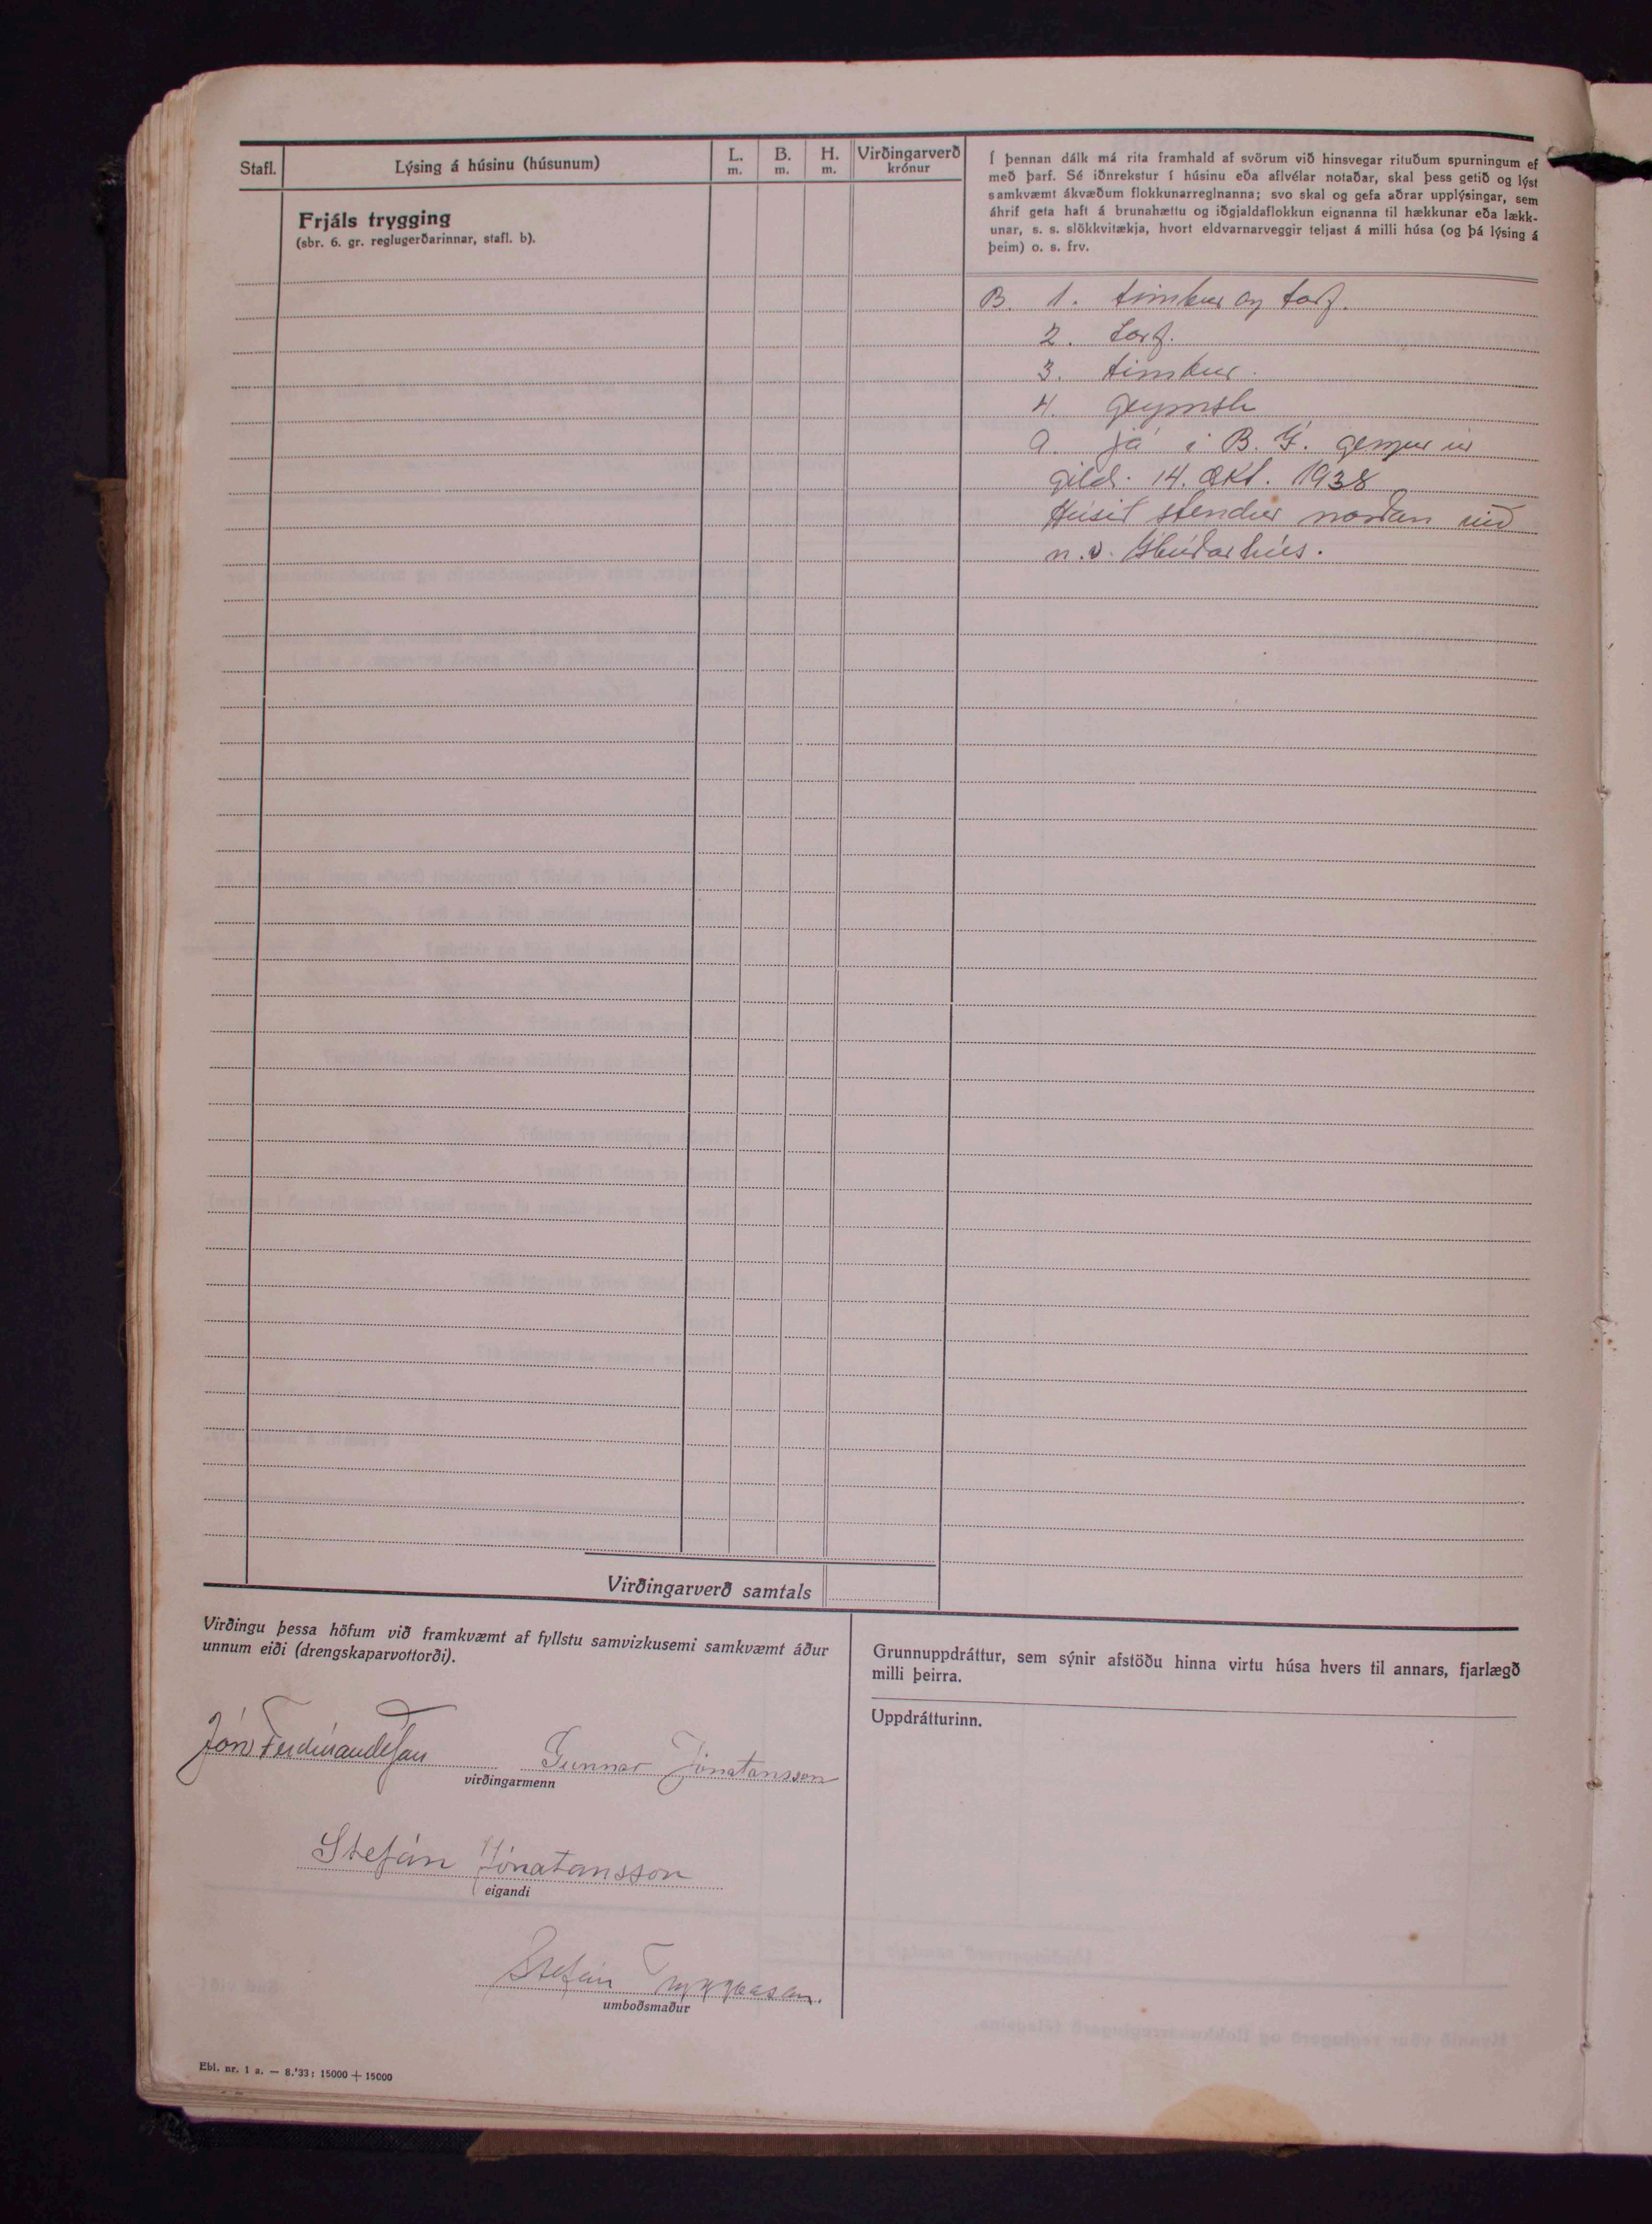 Stafl.
Lýsing á húsinu (húsunum)
L.
m.
B.
m.
H.
m.
Virðingarverð
krónur
Í þennan dálk má rita framhald af svörum við hinsvegar rituðum spurningum ef
með þarf. Sé iðnrekstur í húsinu eða aflvélar notaðar, skal þess getið og lýst
samkvæmt ákvæðum flokkunarreglnanna; svo skal og gefa aðrar upplýsingar, sem
áhrif geta haft á brunahættu og iðgjaldaflokkun eignanna til hækkunar eða lækk-
unar, s. s. slökkvitækja, hvort eldvarnarveggir teljast á milli húsa (og þá lýsing á
þeim) o. s. frv.
Frjáls trygging
(sbr. 6. gr. reglugerðarinnar, stafl. b).
B. 1. timbur og torf.
2. torf.
3. timbur.
4. geymsla
9. já í B. Í. gengur úr
gildi. 14. okt. 1938
Húsið stendur norðan við
n.v. Íbúðarhús.
Virðingarverð samtals
Virðingu þessa höfum við framkvæmt af fyllstu samvizkusemi samkvæmt áður
unnum eiði (drengskaparvottorði).
Jón Ferdínandsson Gunnar Jónatansson
virðingarmenn
Stefán Jónatansson
eigandi
Stefán Tryggvason.
umboðsmaður
Grunnuppdráttur, sem sýnir afstöðu hinna virtu húsa hvers til annars, fjarlægð
milli þeirra.
Uppdrátturinn.
Ebl. nr. 1 a. — 8.'33: 15000 + 15000